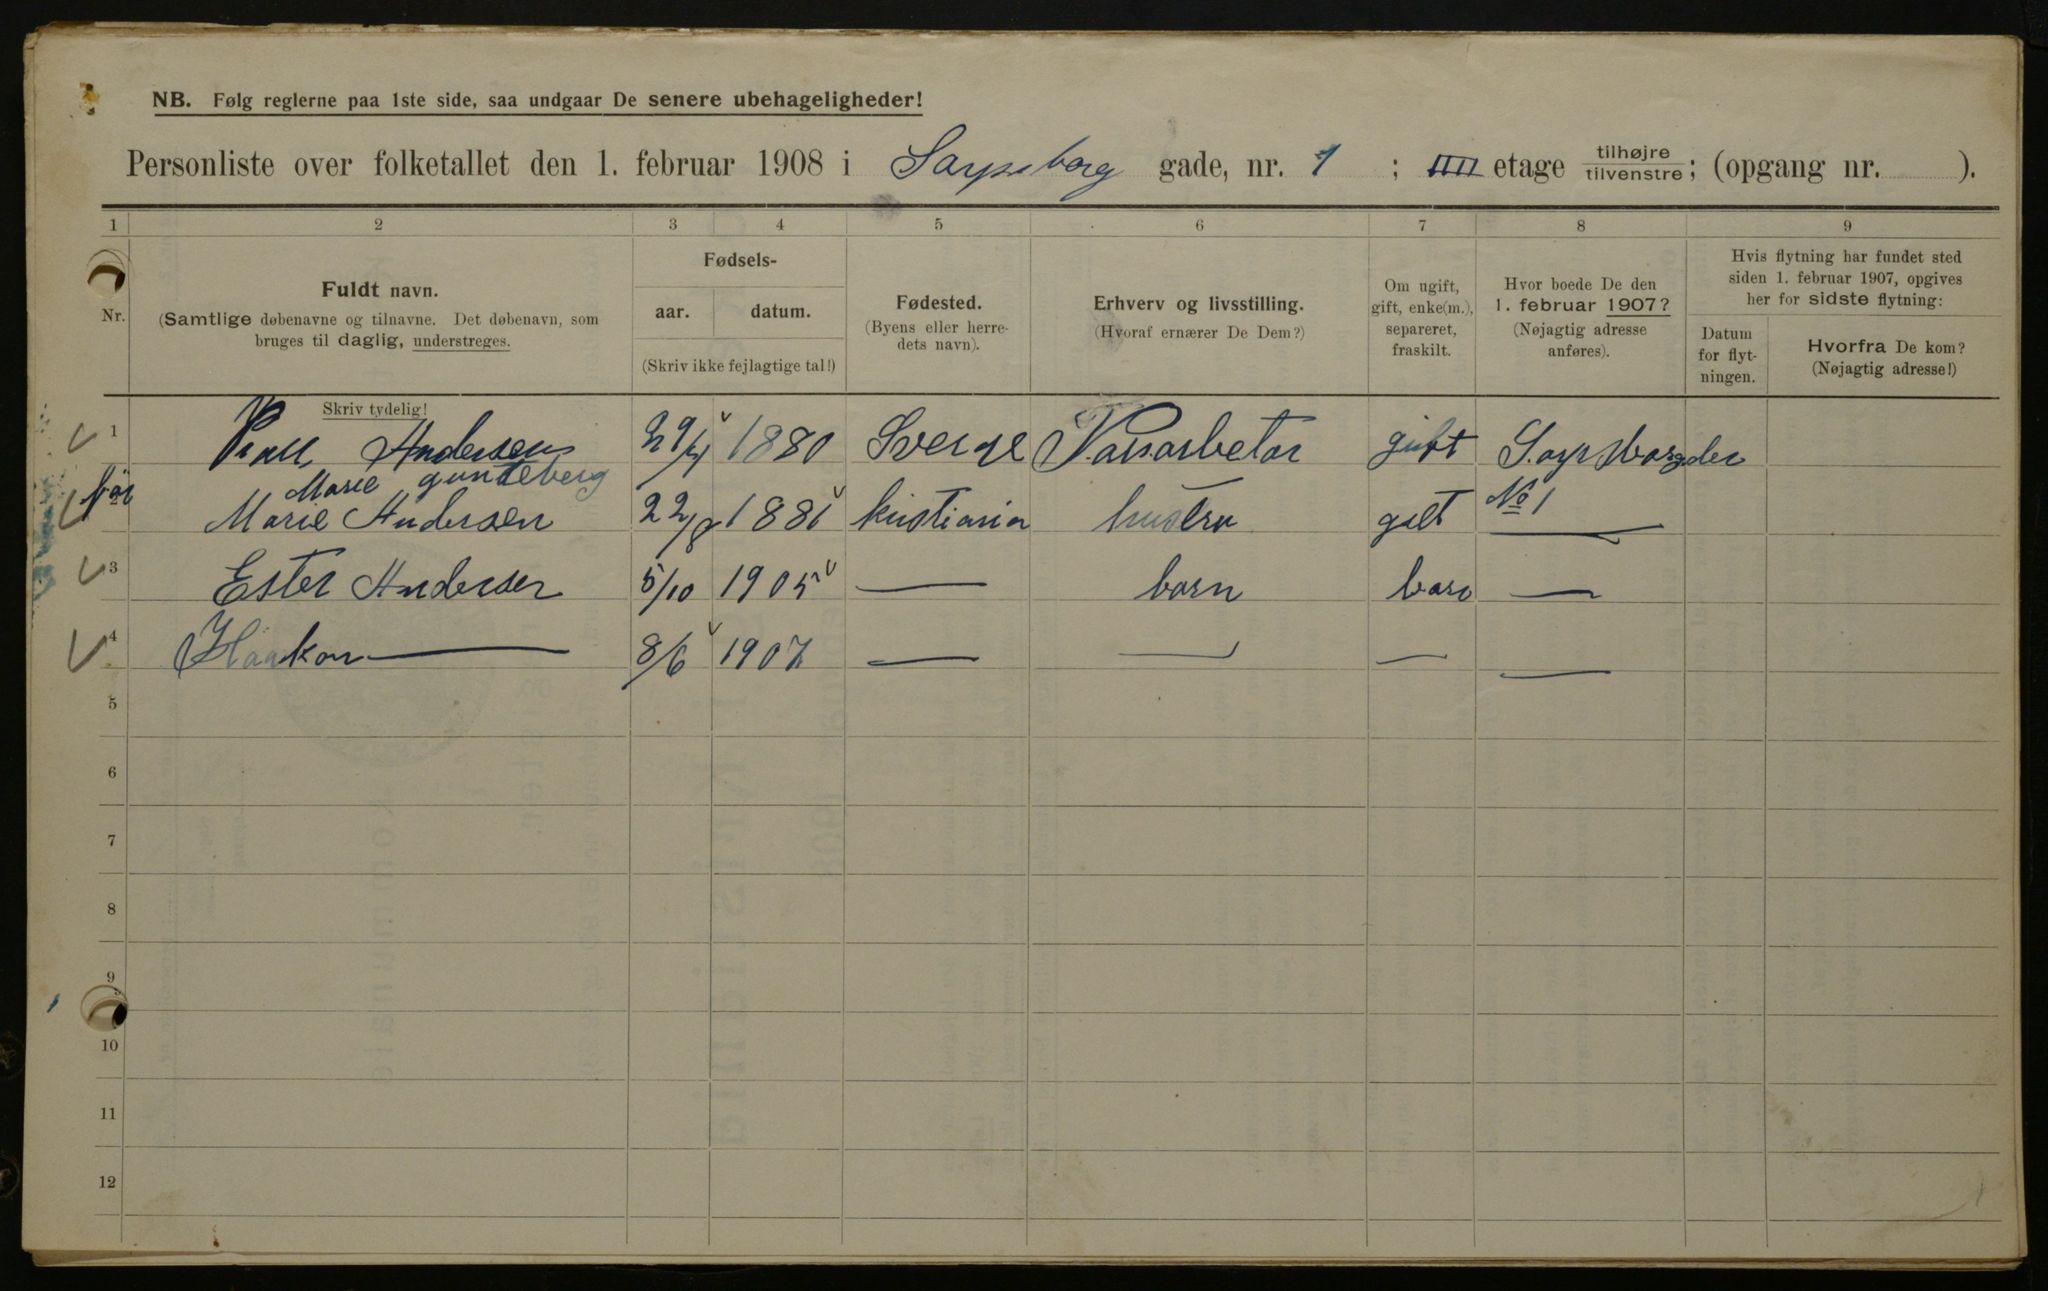 NB. Følg reglerne paa 1ste side, saa undgaar De senere ubehageligheder!
Personliste over folketallet den 1. februar 1908 i Sarpsborg gade, nr. 1 ; IIII etage tilhøjre tilvenstre; (opgang nr. ).
1 2 3 4 5 6 7 8 9
Nr.
Fuldt navn.
(Samtlige døbenavne og tilnavne. Det døbenavn, som
bruges til daglig, understreges.
Skriv tydelig!
Fødsels-
aar. datum.
(Skriv ikke fejlagtige tal!)
Fødested.
(Byens eller herre-
dets navn).
Erhverv og livsstilling.
(Hvoraf ernærer De Dem?)
Om ugift,
gift, enke(m.),
separeret,
fraskilt.
Hvor boede De den
1. februar 1907?
(Nøjagtig adresse
anføres).
Hvis flytning har fundet sted
siden 1. februar 1907, opgives
her for sidste flytning:
Datum
for flyt-
ningen.
Hvorfra De kom?
(Nøjagtig adresse!)
1 Andersen 29/4 1880 Sverge gift
før Marie gunteberg
2 Marie Andersen 22/8 1881 kristiania hustru gift No 1 —
3 Ester Andersen 5/10 1905 — barn barn —
4 Haakon — 8/6 1907 — — — —
5
6
7
8
9
10
11
12